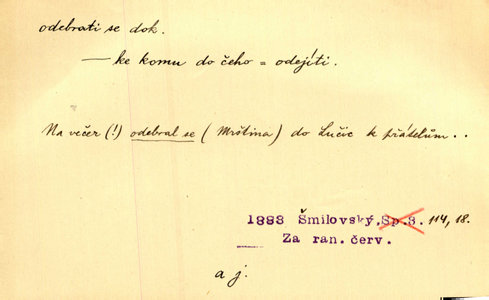 odebrati se dok.
— ke komu do čeho = odejíti.
Na večer (!) odebral se (Mrština) do Lučic k přátelům..
1883 Šmilovský. Sp. 3. 114, 18.
Za ran. červ.
a j.